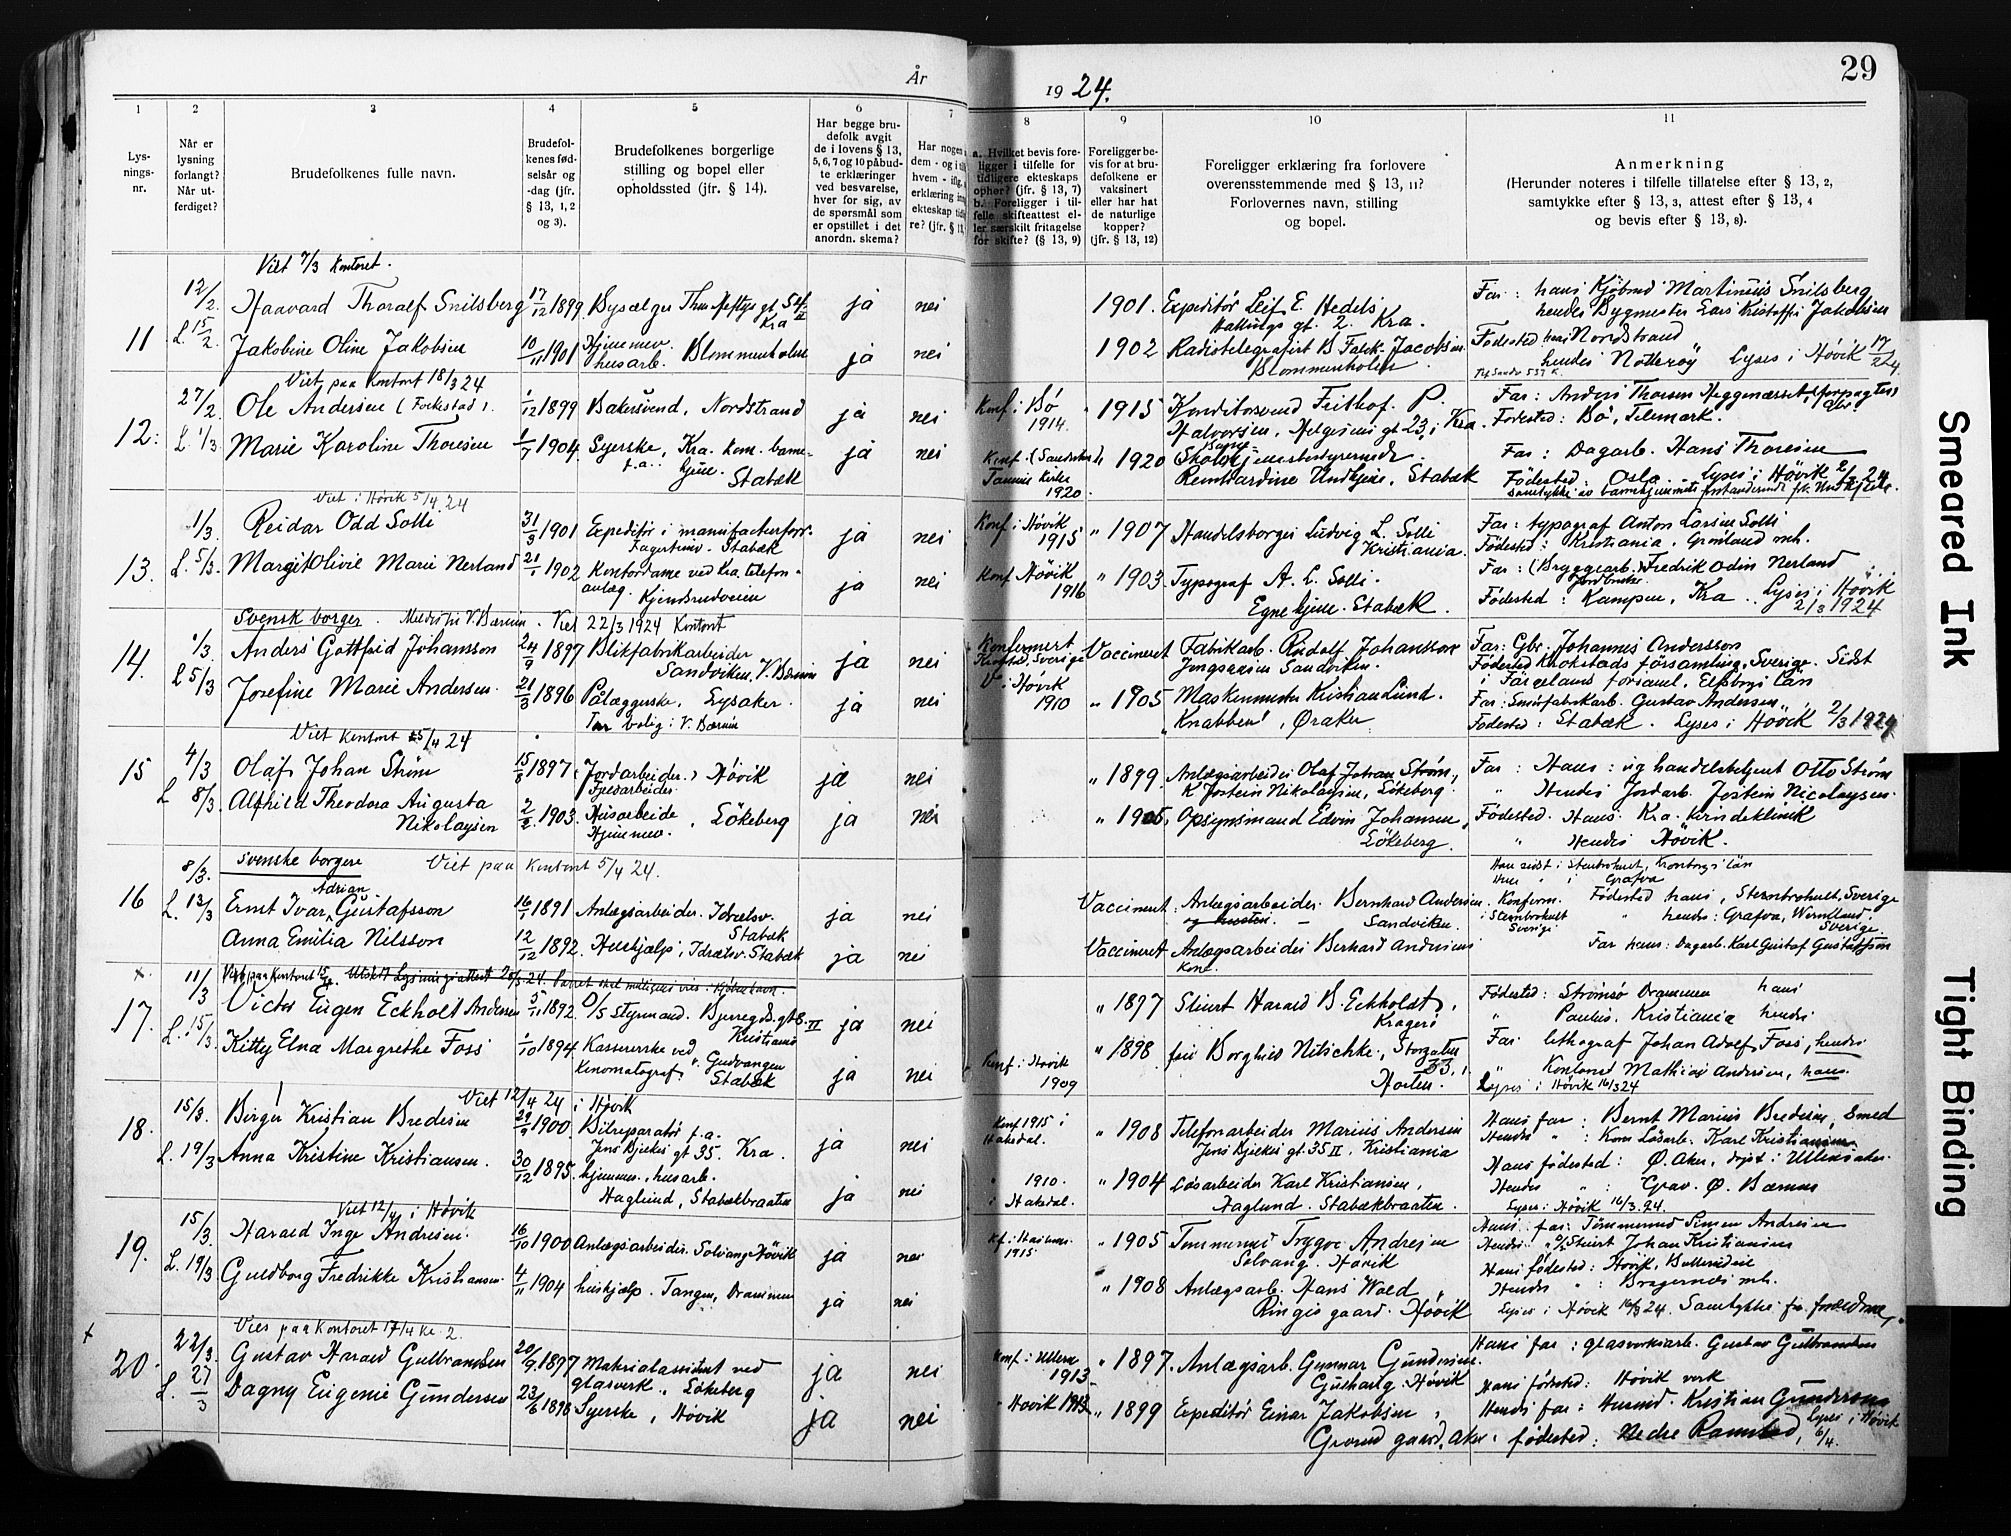 År
19 24.
29
1
2
3
4
5
6
7
8
9
10
11
Lys-
nings-
nr.
Når er
lysning
forlangt?
Når ut-
ferdiget?
Brudefolkenes fulle navn.
Brudefol-
kenes fød-
selsår og
-dag (jfr.
§ 13, 1, 2
og 3).
Brudefolkenes borgerlige
stilling og bopel eller
opholdssted (jfr. § 14).
Har begge bru-
defolk avgit
de i lovens § 13,
5, 6, 7 og 10 påbud-
te erklæringer
ved besvarelse,
hver for sig, av
de spørsmål som
er opstillet i det
anordn. skema?
Har nogen
dem - og i
hvem - iflg.
erklæring
ekteskap
re? (jfr. §
a. Hvilket bevis fore-
ligger i tilfelle for
tidligere ekteskaps
ophør? (jfr. § 13, 7)
b. Foreligger i til-
felle skifteattest el-
ler særskilt fritagelse
for skifte? (§ 13, 9)
Foreligger be-
vis for at bru-
defolkene er
vaksinert
eller har hat
de naturlige
kopper?
(jfr. § 13, 12)
Foreligger erklæring fra forlovere
overensstemmende med § 13, 11?
Forlovernes navn, stilling
og bopel.
Anmerkning
(Herunder noteres i tilfelle tillatelse efter § 13, 2,
samtykke efter § 13, 3, attest efter § 13, 4
og bevis efter § 13, 8).
Viet 7/3 kontoret.
11
12/2
Haavard Thoralf Snilsberg
17/12 1899
ja
nei
1901. Expeditør Leif E.
gt. 2. Kra.
Far: hans Martinius Snilsberg
hendes Bygmester Lars Jakobsen
L 15/2
Jakobine Oline Jakobsen
10/11 1901
Hjemmev.
husarb. Blommenholm
ja
nei
1902 Radiotelegrafist B. Falck-Jacobsen
Blommenholm
Fødested hans Nordstrand
hendes Nøtterøy Lyses i Høvik 17/2 24
Viet paa kontort 18/3 24
12.
27/2
Ole Andersen (Folkestad).
1/12 1899
Bakersvend, Nordstrand
ja
nei
Konf. i Bø
1914.
" 1915
Konditorsvend Frithof. P.
Halvorsen, Helgesens gt 23, i Kra.
Far: Anders Thorsen
Fødested: Bø, Telemark.
L. 1/3
Marie Karoline Thoresen
1/7 1904
Syerske, Kra. kom. barne-
hjem.
Stabæk
ja
nei
Kirke
1920
1920
Stabæk
Far: Dagarb. Hans Thoresen
Fødested: Oslo. Lyses i Høvik 2/3 24
Viet i Høvik 5/4 24
13.
1/3
Reidar Odd Solli
31/3 1901
Expeditør i manufacturforr.
Stabæk
ja
nei
Konf i Høvik
1915
" 1907
Handelsborger Ludvig L. Solli
Kristiania.
Far: typograf Anton Larsen Solli
Fødested: Kristiania, Grønland mh.
L. 5/3
Margit Olivie Marie Nerland
21/1 1902
Kontordame ved Kra. telefon-
anlæg. Kjendsrudveien
ja
nei
Konf Høvik
1916
" 1903
Typograf A. L. Solli.
Egne hjem. Stabæk.
Far: (Bryggearb.) Fredrik Odin Nerland
Fødested: Kampen, Kra. Lyses i Høvik
2/3 1924
Svensk borger. Viet 22/3 1924 Kontort
14.
1/3
Anders Gottfrid Johansson
24/9 1897
Blikfabrikarbeider
Sandviken, V. Bærum
ja
nei
Konfermert
Sverige
Vaccineret
Fabrikarb. Rudolf Johansson
Sandviken.
Far: Gbr. Johannes Andersson
Fødested Krokstads församling, Sverige. Sidst
i Färgelanda församl, Elfsborgs län
L 5/3
Josefine Marie Andersen.
21/3 1896
Pålæggerske, Lysaker.
bolig: V. Bærum
ja
nei
i Høvik
1910
" 1905
Maskinmester Kristian Lund.
"Knabben", Øraker
Far: Gustav Andersen
Fødested: Stabæk. Lyses i Høvik 2/3 1924
Viet kontort 5/4 24
15
4/3
Olaf Johan Strøm
15/8 1897
(Jordarbeider.) Høvik
ja
nei
" 1899
Anlægsarbeider Olaf Johan Strøm,
K Jostein Nikolaysen, Løkeberg.
Far: Hans: Otto Strøm
L 8/3
Alfhild Theodora Augusta
Nikolaysen
2/2 1903
Husarbeide
Hjemmev. Løkeberg
ja
nei
" 1905.
Opsynsmand Edvin Johansen,
Løkeberg.
" Hendes Jordarb. Jostein Nicolaysen.
Fødested. Hans. Kra. Kvindeklinik
" Hendes Høvik.
svenske borgere Viet paa Kontort 5/4 24.
16
8/3.
Adrian
Ernst Ivar Gustafsson
16/1 1891
Anlægsarbeider. Idrætsv.
Stabæk
ja
nei
Vaccineret
Anlægsarbeider Bernhard Andersen
Sandviken.
Fødested hans, Stenbrohult, Sverige
L. 13/3
Anna Emilia Nilsson
12/12 1892
Hushjælp, Idrætsv. Stabæk
ja
nei
Vaccineret
Anlægsarbeider Berhard Andersens
kone.
" hendes: Grafva, Wermland,
Sverige.
Far hans: Dagarb. Karl Gustaf Gustafsson
17.
11/3
Victor Eugen Eckholt Andersen
5/11 1892
O/S Styrmand.
Kristiania
ja
nei
" 1897
Stuert Harald B. Eckholdt,
Kragerø
Fødested: Strømsø Drammen hans
" Paulus. Kristiania hendes
L. 15/3
Kitty Elna Margrethe Foss
1/10 1894
Kassererske ved
Kinomatograf, Gudvangen
Stabæk
ja
nei
Konf. i Høvik
1909
" 1898
frk Borghild Nitschke, Storgaten
33,
Horten.
Far: lithograf Johan Adolf Foss, hendes
" Kontorist Mathias Andersen, hans.
Lyses i Høvik 16/3 24
Viet 12/4 24 i Høvik
18.
15/3.
Birger Kristian Bredesen
29/9 1900.
Bilreparatør f.a.
Jens Bjelkes gt 35. Kra.
ja
nei
Konf 1915 i
Hakedal.
" 1908
Telefonarbeider Marius Andersen
Jens Bjelkes gt. 35 II, Kristiania
Hans far: Bernt Marius Bredesen, Smed
Hendes ": Karl Kristiansen
L. 19/3
Anna Kristine Kristiansen.
30/12 1895.
hjemmev., husarb.
Haglund, Stabækbraaten
ja
nei
" 1910.
i Hakedal.
" 1904
Løsarbeider Karl Kristiansen,
Haglund. Stabækbraaten.
Hans fødested: Ø. Aker,
Hendes ": Grav. Ø. Bærum
Lyses i Høvik 16/3.24.
Viet 12/4 i Høvik
19.
15/3.
Harald Inge Andresen.
16/10 1900
Anlægsarbeider. Solvang Høvik
ja
nei
1915
" 1905
Tømmermd Trygve Andresen
Solvang. Høvik
Hans far: Tømmermd Simen Andresen
Hendes " Stuert Johan Kristiansen
L. 19/3
Guldborg Fredrikke Kristiansen.
4/11 1904
hushjælp. Tangen, Drammen
ja
nei
" 1908
Anlægsarb. Hans Wold,
Ringis gaard. Høvik
Hans fødested: Høvik,
Hendes ": Bragernes mh.
Lyses i Høvik 16/3 24. Samtykke fra forældrene.
Vies paa kontoret 17/4 kl. 2.
20.
22/3.
Gustav Harald Gulbrandsen
20/9 1897
Materialassistent ved
glasverk. Løkeberg
ja
nei
Konf. i Ullern
1913
" 1897.
Anlægsarb. Gunnar Gundersen.
Høvik
Hans far: glasverksarb. Gustav Gulbrandsen
Hans fødested: Høvik verk
L. 27/3
Dagny Eugenie Gundersen
23/6 1898
Syerske, Høvik
ja
nei
" Høvik 1913
" 1899
Expeditør Einar Jakobsen,
Grorud gaard, Aker.
Hendes far: Kristian Gundersen
fødested: Nedre Ramstad, Lyses i Høvik
6/4.
Smeared Ink
Tight Binding